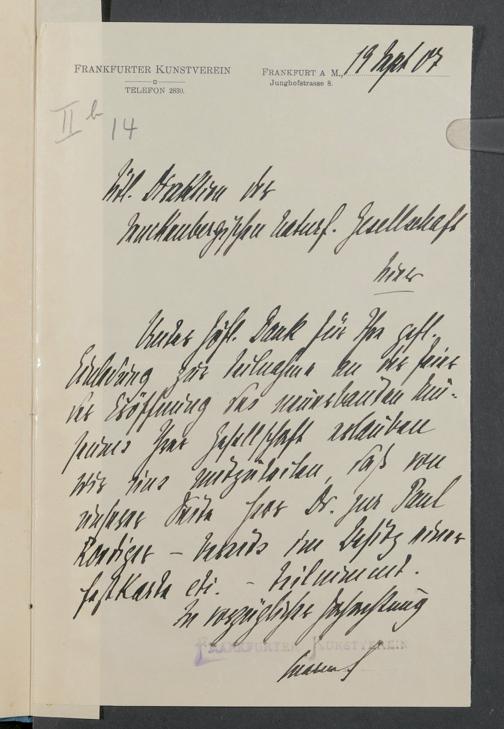 FRANKFURTER KUNSTVEREIN
TELEFON 2830.
FRANKFURT A M., 19 Sept 07
Junghofstrasse 8.
II b 14
Löbl. Direktion der
Senckenbergischen Naturf. Gesellschaft
hier
Unter höfl. Dank für Ihre gefl.
Einladung zur Teilnahme an der Feier
der Eröffnung des neuerbauten Mu-
seums Ihrer Gesellschaft erlauben
wir uns mitzuteilen, daß von
unserer Seite Herr Dr. jur Paul
Roediger – bereits im Besitz einer
Festkarte etc. – teilnimmt.
In vorzüglicher Hochachtung
FRANKFURTER KUNSTVEREIN